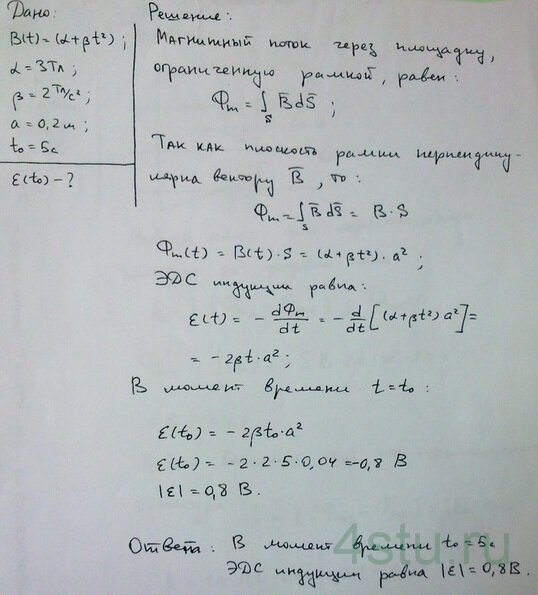 Дано:
B(t)=(α+βt²);
α=3Тл;
β=2 Тл/с²;
a=0,2 м;
t₀=5с
ℰ(t₀)-?
Решение:
Магнитный поток через площадку,
ограниченную рамкой, равен:
Φₘ = ∫_S B̄dS̄ ;
Так как плоскость рамки перпендику-
лярна вектору B̄, то:
Φₘ = ∫_S B̄dS̄ = B·S
Φₘ(t) = B(t)·S = (α+βt²)·a² ;
ЭДС индукции равна:
ℰ(t) = - dΦₘ/dt = - d/dt [(α+βt²)a²] =
= -2βt·a²;
В момент времени t=t₀:
ℰ(t₀) = -2βt₀·a²
ℰ(t₀) = -2·2·5·0,04 = -0,8 В
|ℰ| = 0,8 В.
Ответ: В момент времени t₀=5с
ЭДС индукции равна |ℰ|=0,8В.
4stu.ru